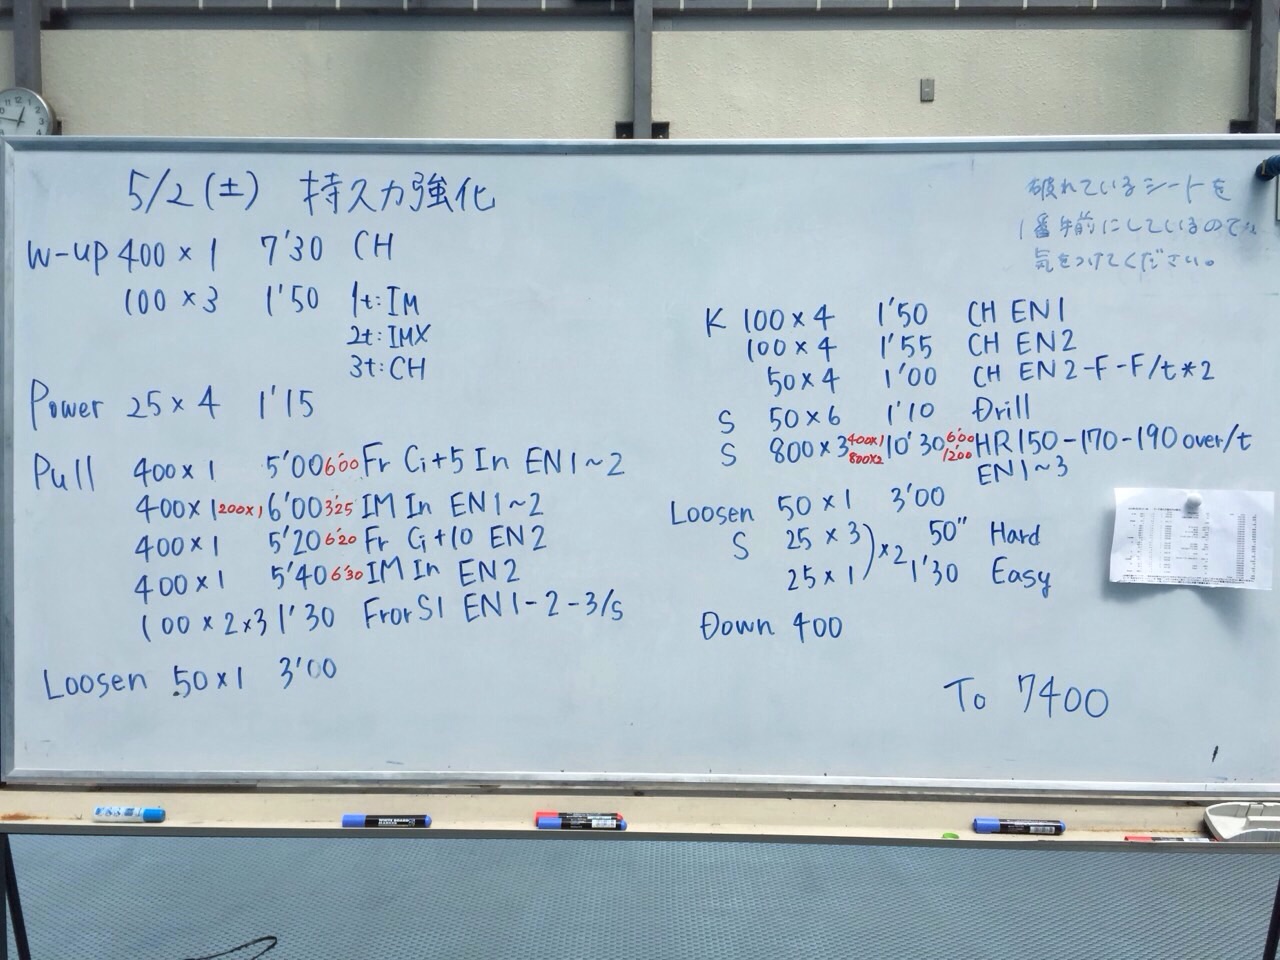 5/2(土) 持久力強化
W-up 400×1 7'30 CH
100×3 1'50 1t:IM
2t:IMX
3t:CH
Power 25×4 1'15
Pull 400×1 5'00 6'00 Fr Ci+5 In EN1~2
400×1 200×1 6'00 3'25 IM In EN1~2
400×1 5'20 6'20 Fr Ci+10 EN2
400×1 5'40 6'30 IM In EN2
100×2×3 1'30 FrorS1 EN1-2-3/s
Loosen 50×1 3'00
破れているシートを
1番手前にしているので
気をつけてください。
K 100×4 1'50 CH EN1
100×4 1'55 CH EN2
50×4 1'00 CH EN2-F-F/t*2
S 50×6 1'10 Drill
S 800×3 400×1 800×2 10'30 6'00 12'00 HR150-170-190over/t
EN1~3
Loosen 50×1 3'00
S 25×3 50" Hard
25×1 )×2 1'30 Easy
Down 400
To 7400